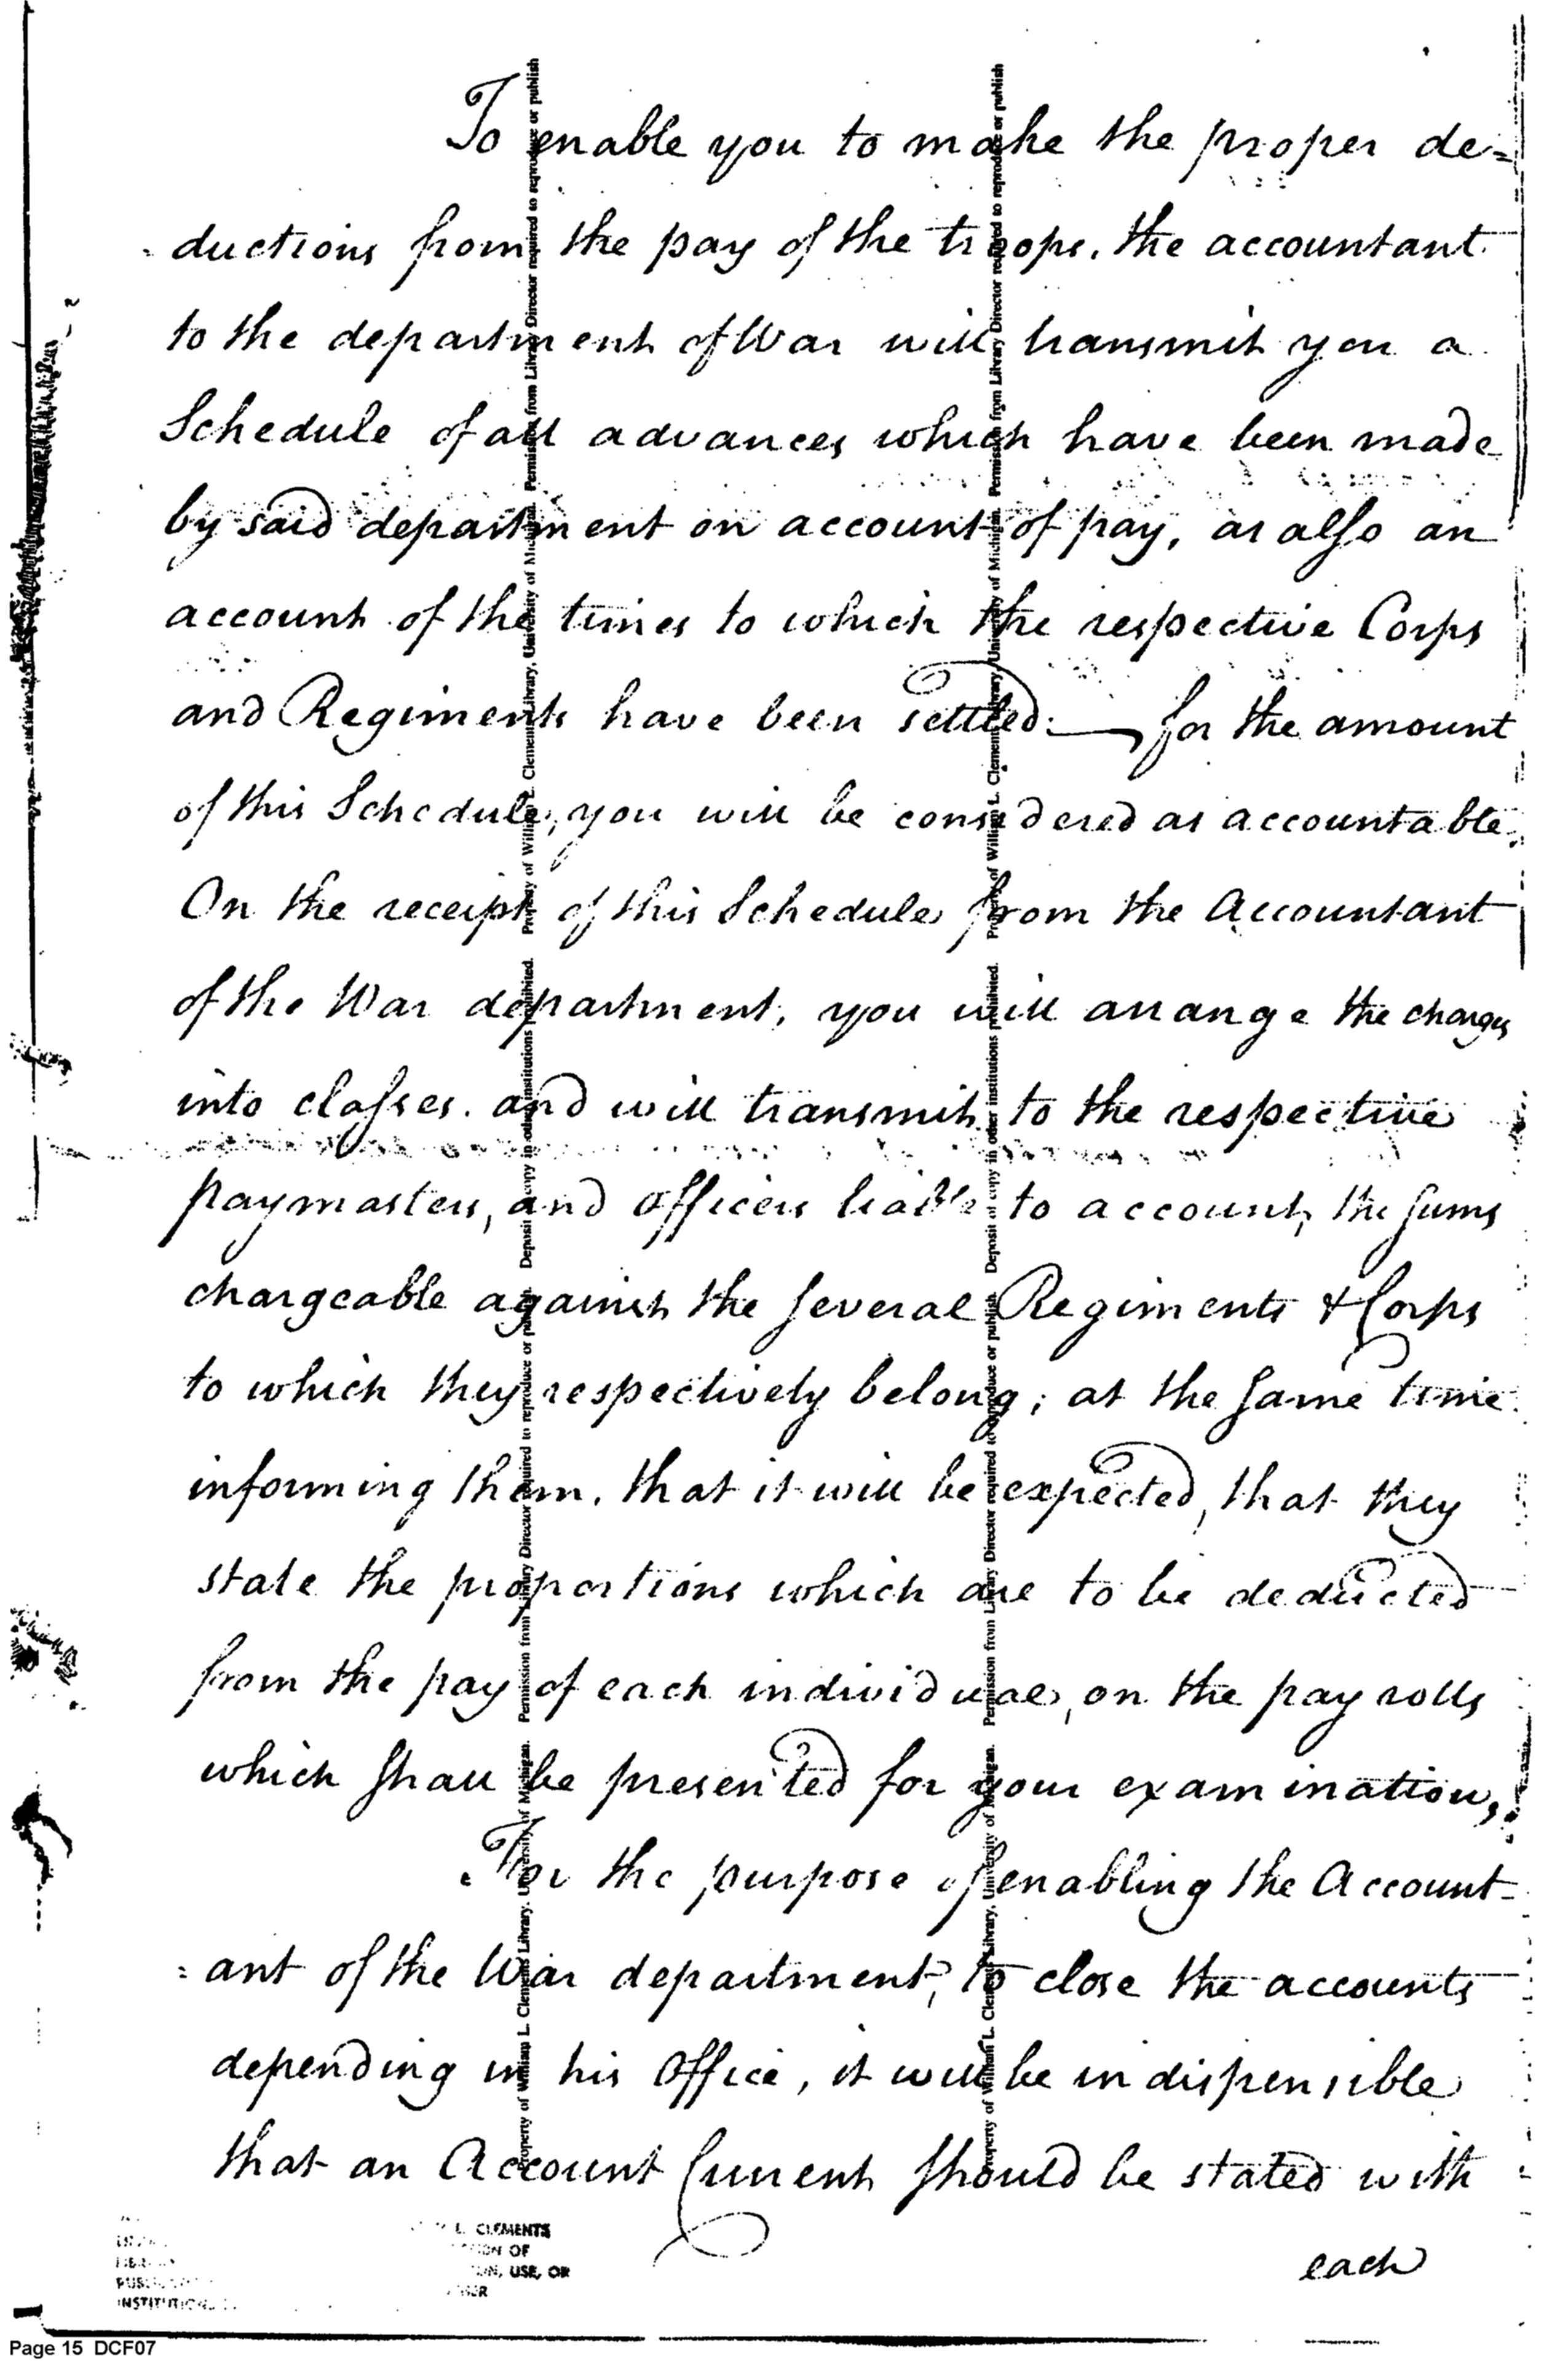 To enable you to make the proper de=
ductions from the pay of the troops, the accountant
to the department of War will transmit you a
Schedule of all advances which have been made
by said department on account of pay, as also an
account of the times to which the respective Corps
and Regiments have been settled:— for the amount
of this Schedule, you will be considered as accountable.
On the receipt of this Schedule from the Accountant
of the War department, you will arrange the charges
into classes. and will transmit to the respective
paymasters, and officers liable to account, the sums
chargeable against the several Regiments & Corps
to which they respectively belong; at the same time
informing them, that it will be expected, that they
state the proportions which are to be deducted
from the pay of each individual, on the pay rolls
which shall be presented for your examination,
For the purpose of enabling the Account-
=ant of the War department, to close the accounts
depending in his Office, it will be indispensible
that an Account Current should be stated with
each
Property of William L. Clements Library, University of Michigan. Permission from Library Director required to reproduce or publish
Deposit of copy in other institutions prohibited.
Property of William L. Clements Library, University of Michigan. Permission from Library Director required to reproduce or publish
Property of William L. Clements Library, University of Michigan. Permission from Library Director required to reproduce or publish
Deposit of copy in other institutions prohibited.
Property of William L. Clements Library, University of Michigan. Permission from Library Director required to reproduce or publish
L. CLEMENTS
OF
USE, OR
Page 15 DCF07